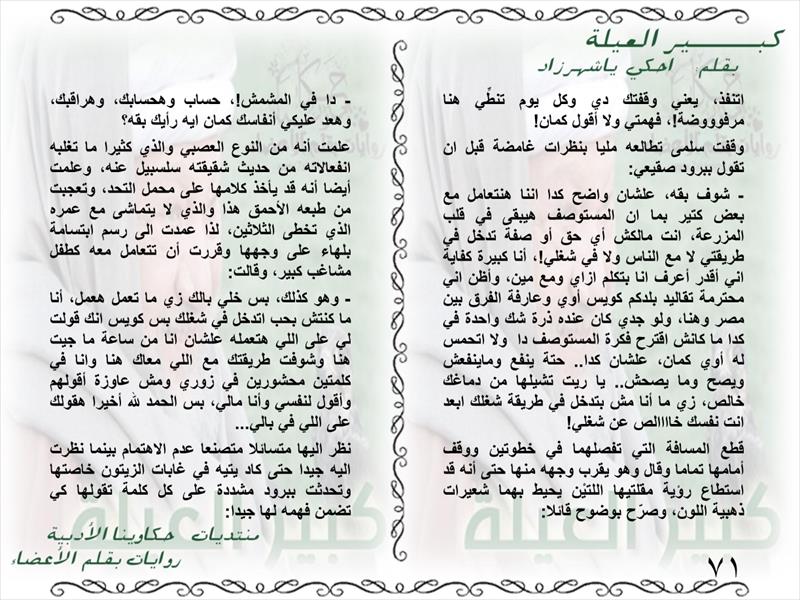 كبـــــــير العيلة
بقلم احكي ياشهرزاد
اتنفذ، يعني وقفتك دي وكل يوم تنطّي هنا
مرفوووضة!، فهمتي ولا أقول كمان!
وقفت سلمى تطالعه مليا بنظرات غامضة قبل ان
تقول ببرود صقيعي:
- شوف بقه، علشان واضح كدا اننا هنتعامل مع
بعض كتير بما ان المستوصف هيبقى في قلب
المزرعة، انت مالكش أي حق أو صفة تدخل في
طريقتي لا مع الناس ولا في شغلي!، أنا كبيرة كفاية
اني أقدر أعرف انا بتكلم ازاي ومع مين، وأظن اني
محترمة تقاليد بلدكم كويس أوي وعارفة الفرق بين
مصر وهنا، ولو جدي كان عنده ذرة شك واحدة في
كدا ما كانش اقترح فكرة المستوصف دا ولا اتحمس
له أوي كمان، علشان كدا.. حتة ينفع وماينفعش
ويصح وما يصحش.. يا ريت تشيلها من دماغك
خالص، زي ما أنا مش بتدخل في طريقة شغلك ابعد
انت نفسك خااالص عن شغلي!
قطع المسافة التي تفصلهما في خطوتين ووقف
أمامها تماما وقال وهو يقرب وجهه منها حتى أنه قد
استطاع رؤية مقلتيها اللتيْن يحيط بهما شعيرات
ذهبية اللون، وصرّح بوضوح قائلا:
- دا في المشمش!، حساب وهحسابك، وهراقبك،
وهعد عليكي أنفاسك كمان ايه رأيك بقه؟
علمت أنه من النوع العصبي والذي كثيرا ما تغلبه
انفعالاته من حديث شقيقته سلسبيل عنه، وعلمت
أيضا أنه قد يأخذ كلامها على محمل التحد، وتعجبت
من طبعه الأحمق هذا والذي لا يتماشى مع عمره
الذي تخطى الثلاثين، لذا عمدت الى رسم ابتسامة
بلهاء على وجهها وقررت أن تتعامل معه كطفل
مشاغب كبير، وقالت:
- وهو كذلك، بس خلي بالك زي ما تعمل هعمل، أنا
ما كنتش بحب اتدخل في شغلك بس كويس انك قولت
لي على اللي هتعمله علشان انا من ساعة ما جيت
هنا وشوفت طريقتك مع اللي معاك هنا وانا في
كلمتين محشورين في زوري ومش عاوزة أقولهم
وأقول لنفسي وأنا مالي، بس الحمد لله أخيرا هقولك
على اللي في بالي...
نظر اليها متسائلا متصنعا عدم الاهتمام بينما نظرت
اليه جيدا حتى كاد يتيه في غابات الزيتون خاصتها
وتحدثت ببرود مشددة على كل كلمة تقولها كي
تضمن فهمه لها جيدا:
كبير العيلة
كبير العيلة
منتديات حكاوينا الأدبية
روايات بقلم الأعضاء
٧١